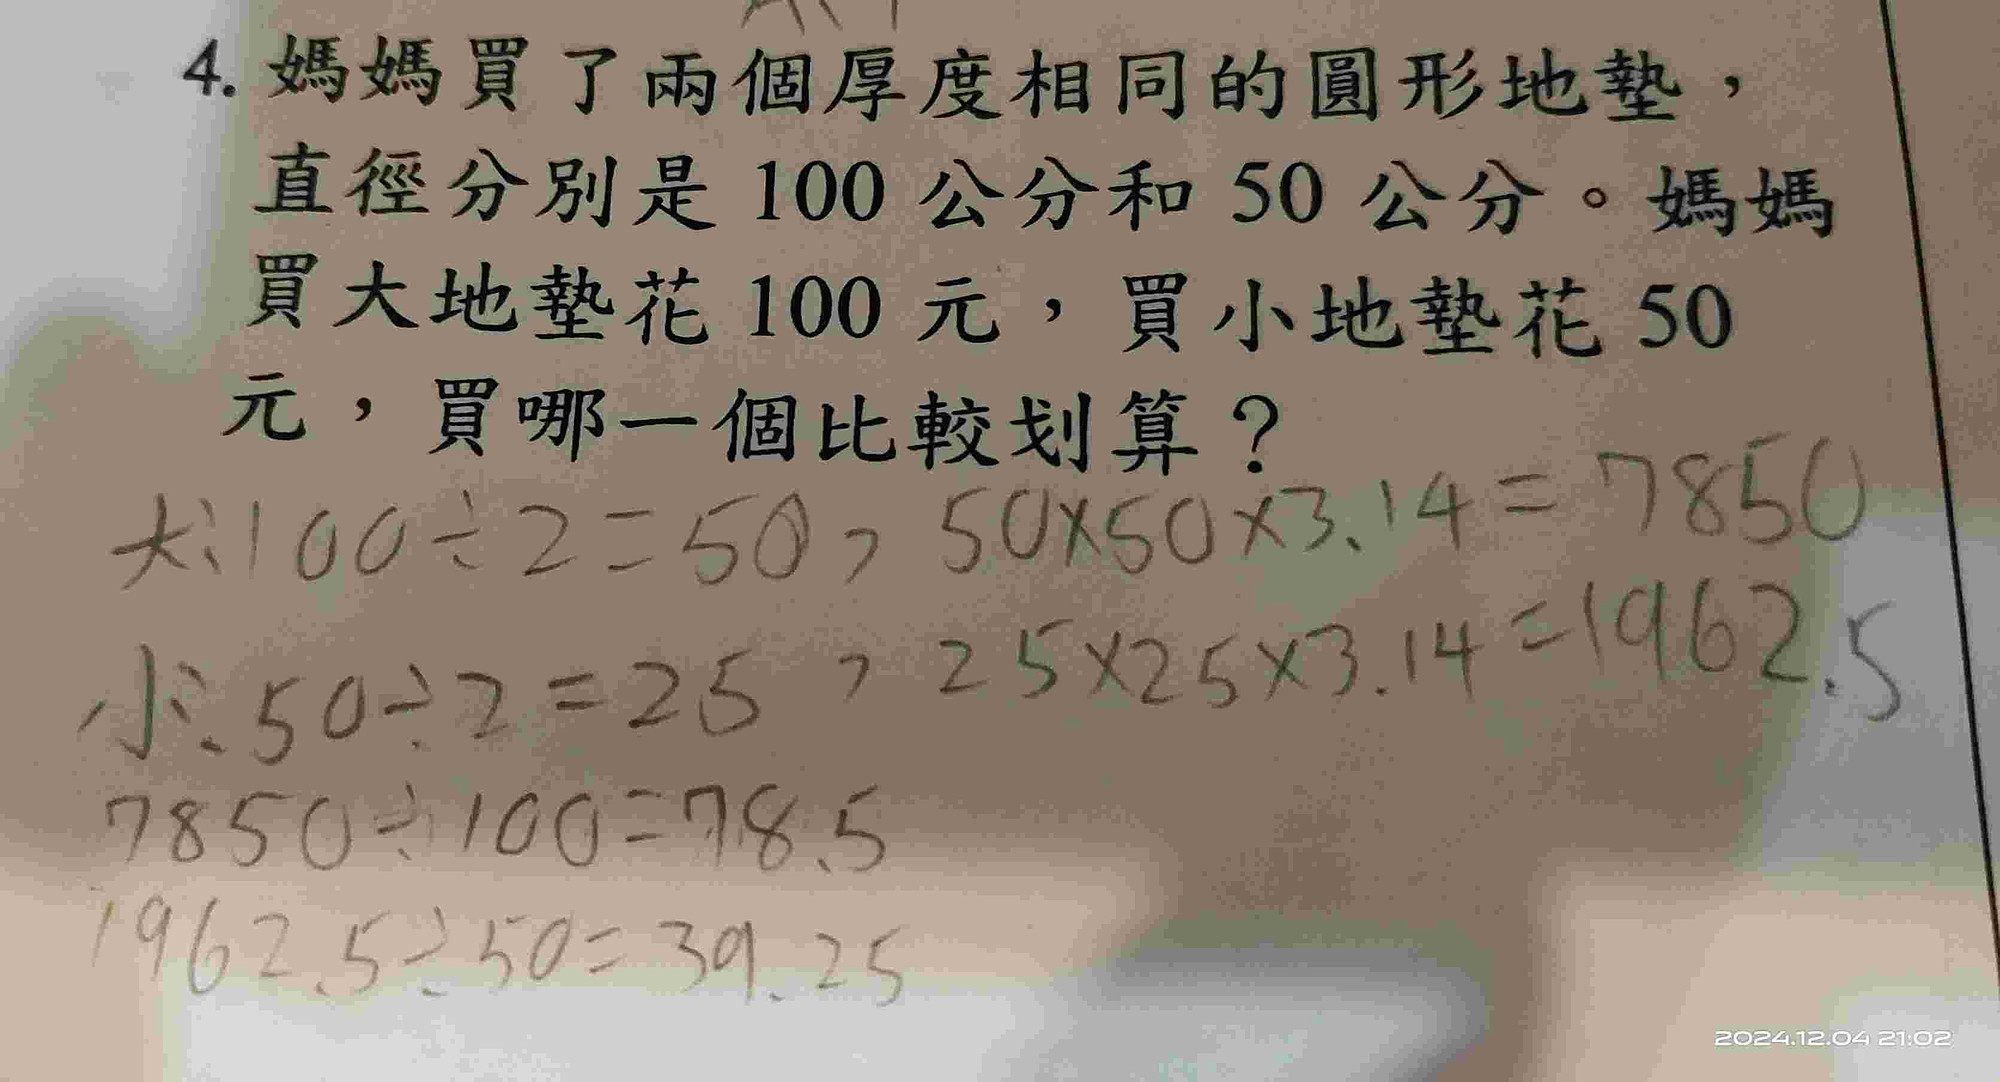 4. 媽媽買了兩個厚度相同的圓形地墊，
直徑分別是 100 公分和 50 公分。媽媽
買大地墊花 100 元，買小地墊花 50
元，買哪一個比較划算？
大:100÷2=50，50×50×3.14=7850
小:50÷2=25，25×25×3.14=1962.5
7850÷100=78.5
1962.5÷50=39.25
2024.12.04 21:02